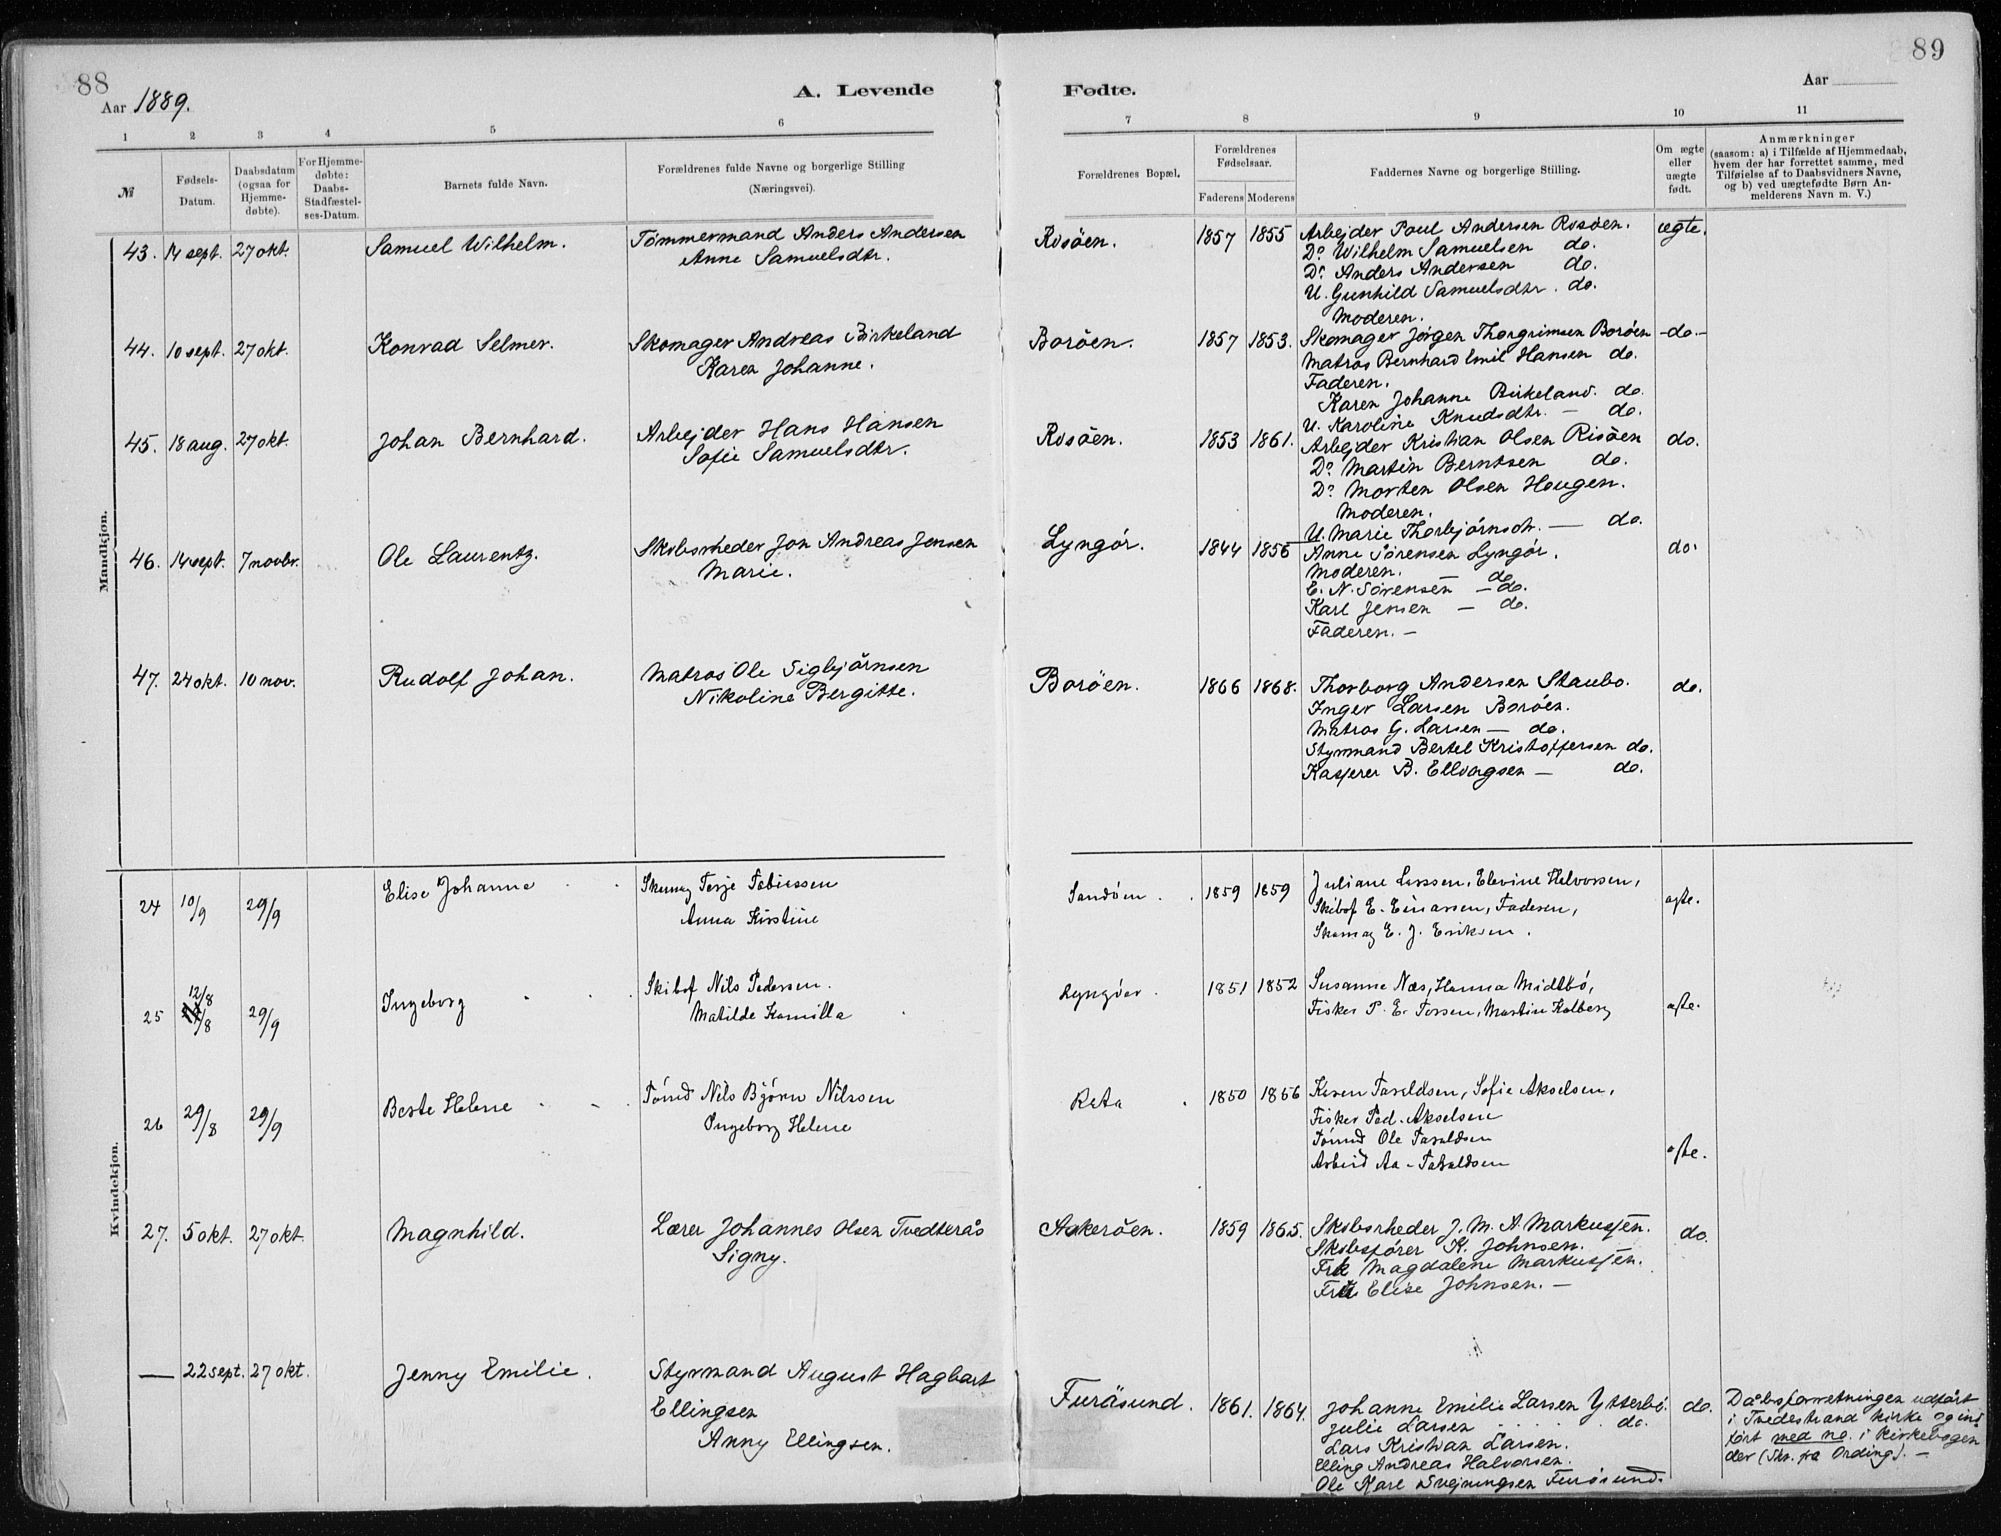 88
89
Aar 1889.
A. Levende Fødte.
Aar
1 2 3 4 5 6 7 8 9 10 11
№
Fødsels-Datum.
Daabsdatum (ogsaa for Hjemme-døbte).
For Hjemme-døbte: Daabs-Stadfæstel-ses-Datum.
Barnets fulde Navn.
Forældrenes fulde Navne og borgerlige Stilling (Næringsvei).
Forældrenes Bopæl.
Forældrenes Fødselsaar.
Faderens Moderens
Faddernes Navne og borgerlige Stilling.
Om ægte eller uægte født.
Anmærkninger
(saasom: a) i Tilfælde af Hjemmedaab, hvem der har forrettet samme, med Tilføielse af to Daabsvidners Navne, og b) ved uægtefødte Børn An-melderens Navn m. V.)
Mandkjøn.
43. 14 sept. 27 okt. Samuel Wilhelm. Tømmermand Anders Andersen
Anne Samuelsdtr.
Risöen. 1857 1855 Arbejder Poul Andersen Risöen. ægte.
Do Wilhelm Samuelsen do.
Do Anders Andersen do.
U. Gunhild Samuelsdtr. do.
Moderen.
44. 10 sept. 27 okt. Konrad Selmer. Skomager Andreas Birkeland
Karen Johanne.
Boröen. 1857 1853. Skomager Jörgen Thorgrimsen Boröen -do-
Matros Bernhard Emil Hansen do.
Faderen.
Karen Johanne Birkeland. do.
U. Karoline Knudsdtr. — do.
45. 18 aug. 27 okt. Johan Bernhard. Arbejder Hans Hansen
Sofie Samuelsdtr.
Risöen. 1853 1861. Arbejder Kristian Olsen Risöen do.
Do Martin Berntsen do.
Do Morten Olsen Hougen.
Moderen.
U. Marie Thorbjörnsdtr. — do.
46. 14 sept. 7 novbr. Ole Laurentz. Skibsrheder Jon Andreas Jensen
Marie.
Lyngör. 1844 1856 Anne Sörensen Lyngör. do.
Moderen. — do
E. N. Sörensen — do.
Karl Jensen — do.
Faderen. —
47. 24 okt. 10 nov. Rudolf Johan. Matros Ole Sigbjörnsen
Nikoline Bergitte.
Boröen. 1866 1868. Thorborg Andersen Staubo. do.
Inger Larsen Boröen.
Matros G. Larsen — do.
Styrmand Bertel Kristoffersen do.
Kasjerer B. Ellvagsen — do.
Kvindekjøn.
24 10/9 29/9 Elise Johanne Skomag Terje Tobiassen
Anna Kirstine
Sandöen 1859 1859 Juliane Larssen, Elevine Helvorsen, ægte.
Skibsf E. Einarssen, Faderen,
Skomag E. J. Eriksen.
25 12/8 29/9 Ingeborg Skibsf Nils Pedersen.
Matilde Kamilla
Lyngöer 1851 1852 Susanne Næs, Hanna Midtbö, ægte.
Fisker P. E. Torsen, Martin Kolberg
26 29/8 29/9 Berte Helene Tömd Nils Björn Nilssen
Ingeborg Helene
Reta 1850 1856 Karen Taraldsen, Sofie Akselsen,
Fisker Ped. Akselsen
Tömd Ole Taraldsen
Arbeid Aa. Taraldsen ægte.
27. 5 okt. 27 okt. Magnhild. Lærer Johannes Olsen Tvedterås
Signy.
Askeröen. 1859 1865. Skibsrheder J. M. A. Markussen. do.
Skibsförer K. Johnsen.
Frk Magdalene Markussen.
Elise Johnsen. —
— 22 sept. 27 okt. Jenny Emilie. Styrmand August Hagbart
Ellingsen
Anny Ellingsen.
Furösund. 1861. 1864. Johanne Emilie Larsen Ytterbö. do.
Julie Larsen do.
Lars Kristian Larsen.
Elling Andreas Halvorsen.
Ole Karl Svejnungsen Furösund.
Dåbsforretningen udfört
i Tvedestrand kirke og ind
fört med no. i kirkebogen
der (Skr. fra Ording). —